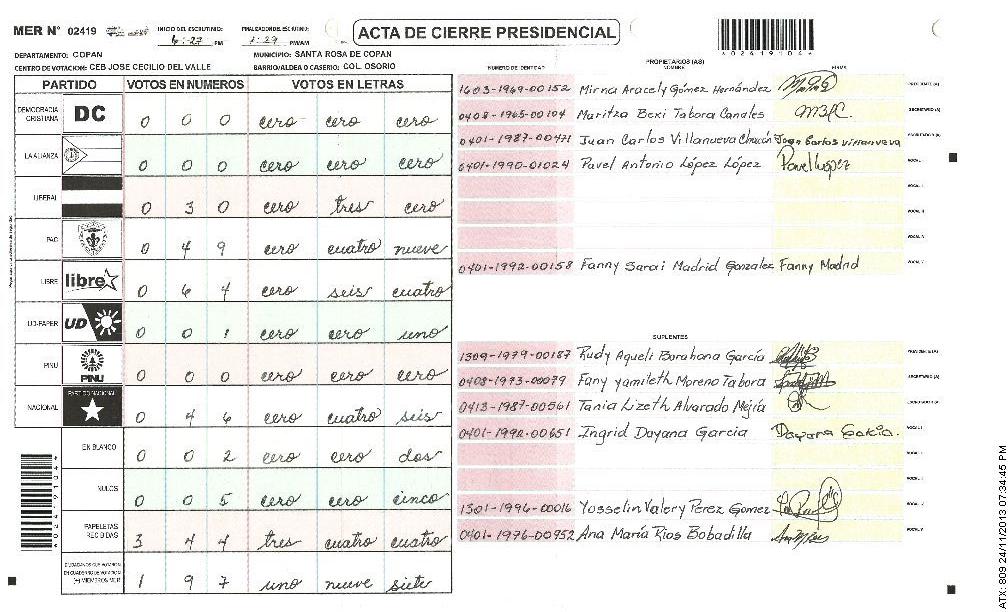 MER N° 02419 INICIO DEL ESCRUTINIO: 6:27 PM FINALIZACION DEL ESCRUTINIO: 7:29 PM/AM
ACTA DE CIERRE PRESIDENCIAL
*02419104*
DEPARTAMENTO: COPAN MUNICIPIO: SANTA ROSA DE COPAN
CENTRO DE VOTACION: CEB JOSE CECILIO DEL VALLE BARRIO/ALDEA O CASERIO: COL. OSORIO
PARTIDO VOTOS EN NUMEROS VOTOS EN LETRAS
DEMOCRACIA CRISTIANA DC 0 0 0 cero cero cero
LA ALIANZA 0 0 0 cero cero cero
LIBERAL 0 3 0 cero tres cero
PAC 0 4 9 cero cuatro nueve
LIBRE libre 0 6 4 cero seis cuatro
UD-FAPER UD 0 0 1 cero cero uno
PINU PINU 0 0 0 cero cero cero
NACIONAL PARTIDO NACIONAL 0 4 6 cero cuatro seis
EN BLANCO 0 0 2 cero cero dos
NULOS 0 0 5 cero cero cinco
PAPELETAS RECIBIDAS 3 4 4 tres cuatro cuatro
CIUDADANOS QUE VOTARON
EN CUADERNO DE VOTACION
(+) MIEMBROS MER 1 9 7 uno nueve siete
PROPIETARIOS (AS)
NUMERO DE IDENTIDAD NOMBRE FIRMA
1603-1969-00152 Mirna Aracely Gómez Hernández PRESIDENTE (A)
0408-1965-00104 Maritza Bexi Tabora Canales SECRETARIO (A)
0401-1987-00471 Juan Carlos Villanueva Chacón Juan Carlos Villanueva ESCRUTADOR (A)
0401-1990-01024 Pavel Antonio López López Pavel López VOCAL I
VOCAL II
VOCAL III
VOCAL IV
0401-1992-00158 Fanny Sarai Madrid Gonzalez Fanny Madrid VOCAL V
SUPLENTES
1309-1979-00187 Rudy Aqueli Barahona García PRESIDENTE (A)
0408-1973-00079 Fany Yamileth Moreno Tabora SECRETARIO (A)
0413-1987-00561 Tania Lizeth Alvarado Mejía ESCRUTADOR (A)
0401-1992-00651 Ingrid Dayana Garcia Dayana Garcia. VOCAL I
1301-1996-00016 Yosselin Valery Perez Gomez
0401-1976-00952 Ana María Rios Bobadilla VOCAL V
*02419104*
ATX: 809 24/11/2013 07:34:45 PM